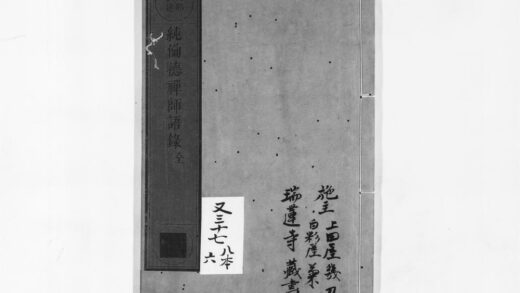 純禪德禪師語錄 全
又三十七 八本
六
施主 上田屋幾
白彩屋 菊
瑞蓮寺 藏書